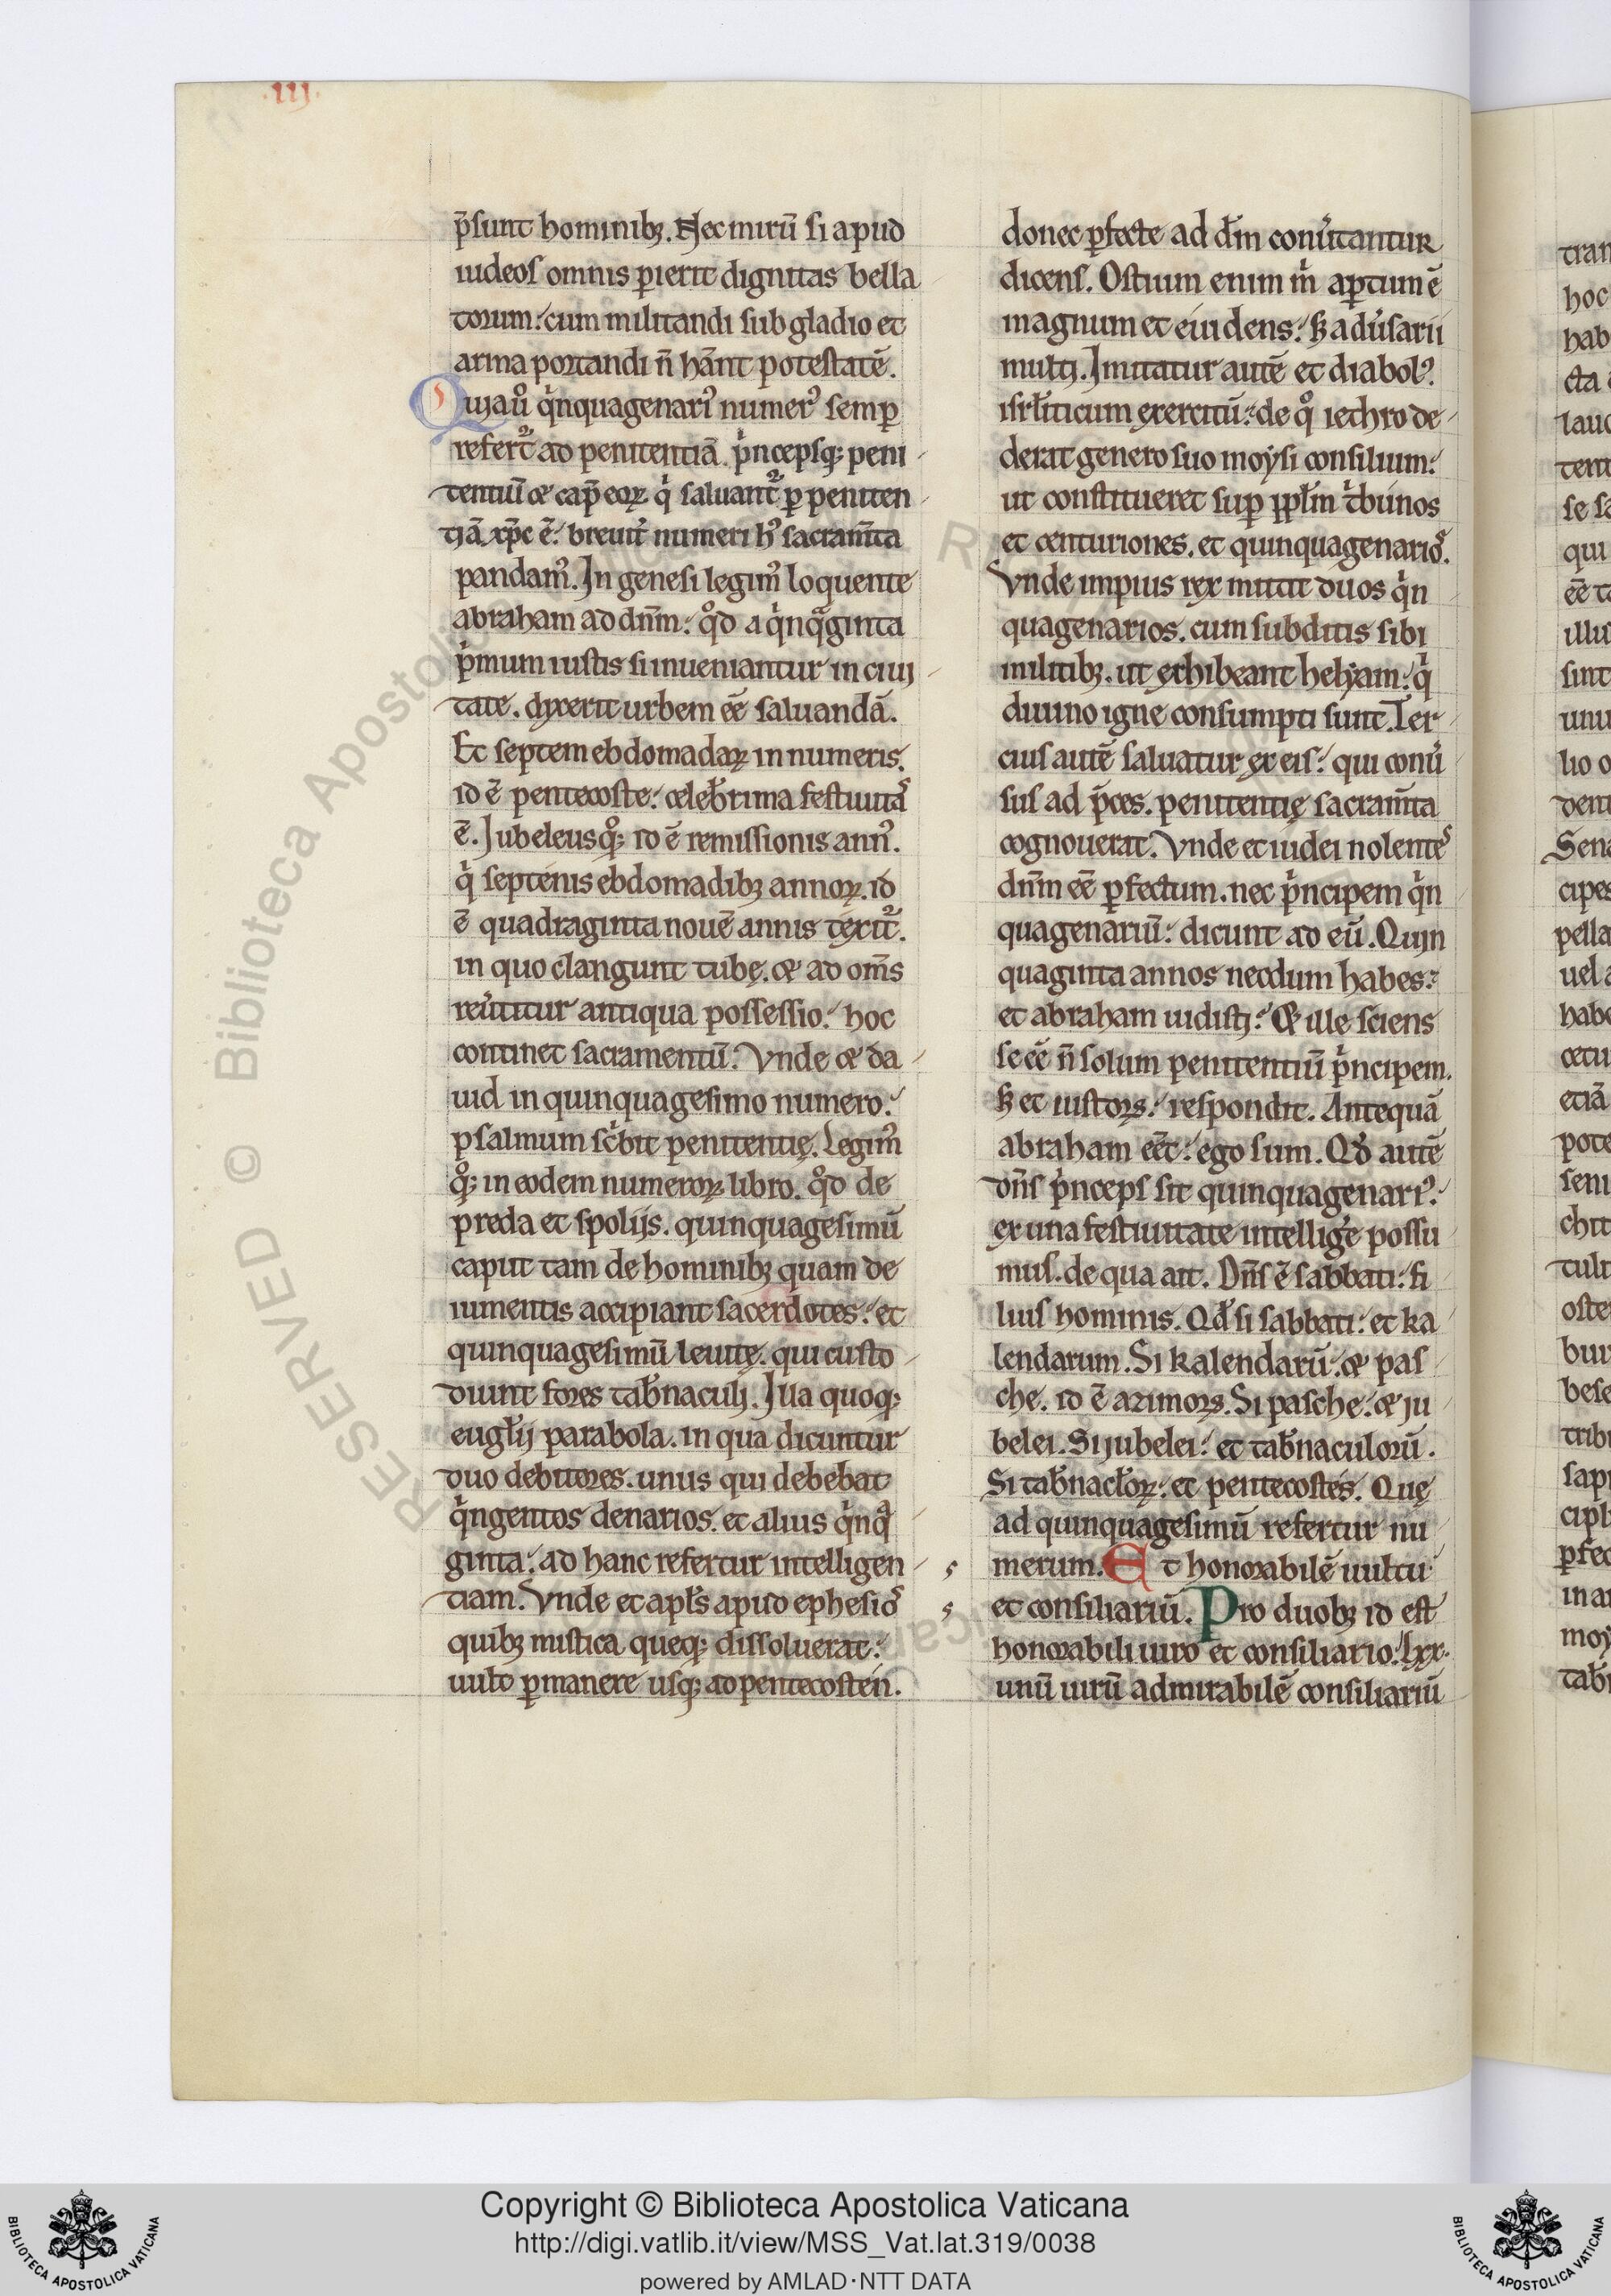 .iij.
p̄sunt hominibꝫ. Nec mirū si apud
iudeos omnis ꝑierit dignitas bella
torum: cum militandi sub gladio et
arma portandi n̄ hn̄t potestatē.
Quia ū° qͥnquagenariꝰ numerꝰ semꝑ
refertᷣ ad penitentiā. pͥncepsqꝫ peni
tentiū & cap̄ eoꝝ qͥ saluantᷣ ꝑ peniten
tiā xp̄c ē: breuiť numeri hꝰ sacram̄ta
pandamꝰ. In genesi legimꝰ loquente
abraham ad dn̄m: qͦd a qͥnqᷓginta
pͥmum iustis si inueniantur in ciui
tate. dixerit urbem eē saluandā.
Et septem ebdomadaꝝ in numeris.
id ē pentecoste: celeb̓rima festiuitas
ē. Jubeleus qͦꝫ id ē remissionis annꝰ.
qͥ septenis ebdomadibꝫ annoꝝ. id
ē quadraginta nouē annis texitᷣ.
in quo clangunt tubę. & ad om̄s
reu̓titur antiqua possessio: hoc
continet sacramentū. Vnde & da
uid in quinquagesimo numero:
psalmum sc̓bit penitentię. Legimꝰ
qͦꝫ in eodem numeroꝝ libro. qͦd de
preda et spolijs. quinquagesimū
caput tam de hominibꝫ quam de
iumentis accipiant sacerdotes: et
quinquagesimū leuitę. qui custo
diunt fores tab̓naculi. Illa quoqꝫ
eugl̓ij parabola. in qua dicuntur
duo debitores. unus qui debebat
qͥngentos denarios. et alius qͥnqᷓ
ginta: ad hanc refertur intelligen
tiam. Vnde et apl̓s apud ephesios
quibꝫ mistica queqꝫ dissoluerat:
uult ꝑmanere usqꝫ ad pentecosten.
donec ꝑfecte ad dm̄ conu̓tantur
dicens. Ostium enim m̓ aꝑtum ē
magnum et euidens: sꝫ adu̓sarii
multi. Imitatur autē et diabolꝰ.
isrl̓iticum exercitū: de qͦ iethro de
derat genero suo moysi consilium:
ut constitueret suꝑ ppl̓m tͥbunos
et centuriones. et quinquagenarios.
Vnde impius rex mittit duos qͥn
quagenarios. cum subditis sibi
militibꝫ. ut exhibeant helyam: qͥ
diuino igne consumpti sunt. Ter
cius autē saluatur ex eis: qui conu̓
sus ad p̄ces. penitentię sacram̄ta
cognouerat. Vnde et iudei nolentes
dn̄m eē ꝑfectum. nec pͥncipem qͥn
quagenariū: dicunt ad eū. Quin
quaginta annos necdum habes:
et abraham uidisti: & ille sciens
se eē n̄ solum penitentiū pͥncipem.
sꝫ et iustoꝝ: respondit. Antequā
abraham eēt: ego sum. Qd̓ autē
dn̄s pͥnceps sit quinquagenariꝰ:
ex una festiuitate intellige̓ possu
mus. de qua ait. Dn̄s ē sabbati: fi
lius hominis. Qd̓ si sabbati: et ka
lendarum. Si kalendarū: & pas
che. id ē azimoꝝ. Si pasche: & iu
belei. Si iubelei: et tab̓naculorū.
Si tab̓nacl̓oꝝ: et pentecostes. Quę
ad quinquagesimū refertur nu
merum. Et honorabilē uultu
et consiliariū. Pro duobꝫ id est
honorabili uiro et consiliario: lxx.
unū uirū admirabilē consiliariū
Copyright © Biblioteca Apostolica Vaticana
http://digi.vatlib.it/view/MSS_Vat.lat.319/0038
powered by AMLAD·NTT DATA
BIBLIOTECA APOSTOLICA VATICANA
BIBLIOTECA APOSTOLICA VATICANA